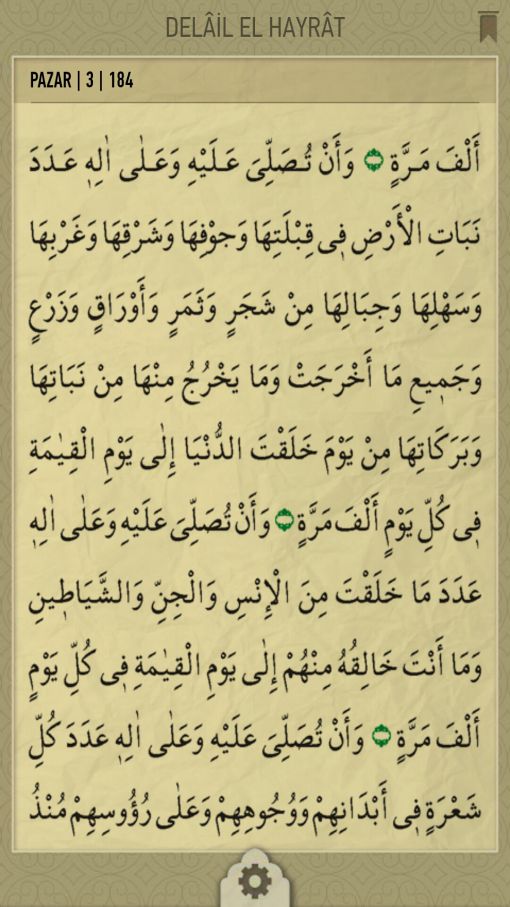 DELÂİL EL HAYRÂT
PAZAR | 3 | 184
أَلْفَ مَرَّةٍ ۝ وَأَنْ تُصَلِّىَ عَلَيْهِ وَعَلٰى اٰلِهٖ عَدَدَ
نَبَاتِ الْأَرْضِ فٖى قِبْلَتِهَا وَجَوْفِهَا وَشَرْقِهَا وَغَرْبِهَا
وَسَهْلِهَا وَجِبَالِهَا مِنْ شَجَرٍ وَثَمَرٍ وَأَوْرَاقٍ وَزَرْعٍ
وَجَمٖيعِ مَا أَخْرَجَتْ وَمَا يَخْرُجُ مِنْهَا مِنْ نَبَاتِهَا
وَبَرَكَاتِهَا مِنْ يَوْمَ خَلَقْتَ الدُّنْيَا إِلٰى يَوْمِ الْقِيٰمَةِ
فٖى كُلِّ يَوْمٍ أَلْفَ مَرَّةٍ ۝ وَأَنْ تُصَلِّىَ عَلَيْهِ وَعَلٰى اٰلِهٖ
عَدَدَ مَا خَلَقْتَ مِنَ الْإِنْسِ وَالْجِنِّ وَالشَّيَاطٖينِ
وَمَا أَنْتَ خَالِقُهُ مِنْهُمْ إِلٰى يَوْمِ الْقِيٰمَةِ فٖى كُلِّ يَوْمٍ
أَلْفَ مَرَّةٍ ۝ وَأَنْ تُصَلِّىَ عَلَيْهِ وَعَلٰى اٰلِهٖ عَدَدَ كُلِّ
شَعْرَةٍ فٖى أَبْدَانِهِمْ وَوُجُوهِهِمْ وَعَلٰى رُؤُوسِهِمْ مُنْذُ